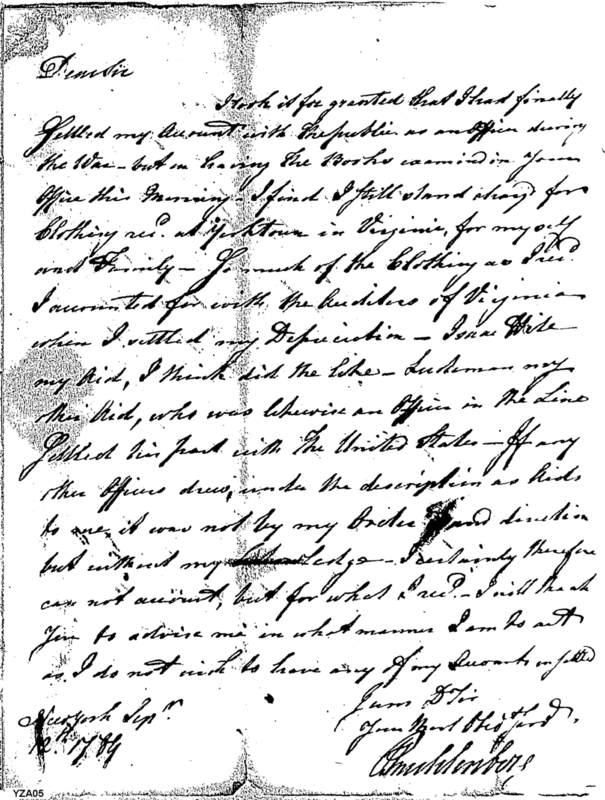 Dear Sir
I took it for granted that I had finally
Settled my Account with the public as an Officer during
the War — but on having the Books examined in Your
Office this Morning — I find I still stand chargd for
Clothing recd. at Yorktown in Virginia, for myself
and Family — So much of the Clothing as I recd.
I accounted for with the Auditors of Virginia
when I settled my Depreciation — Isaac Hite
my Aid, I think did the like — Ludeman my
other Aid, who was likewise an Officer in the Line
Settled his part with The United States — If any
other Officers drew, under the description as Aids
to me, it was not by my Order and direction
but without my Knowledge — I certainly therefore
can not account, but for what I recd. — I will thank
You to advise me in what manner I am to act
as I do not wish to have any of my Accounts unsettled
I am Dr Sir
Your Most Obed Servt.
PMuhlenberg
New York Sepr.
12th. 1789
YZA05